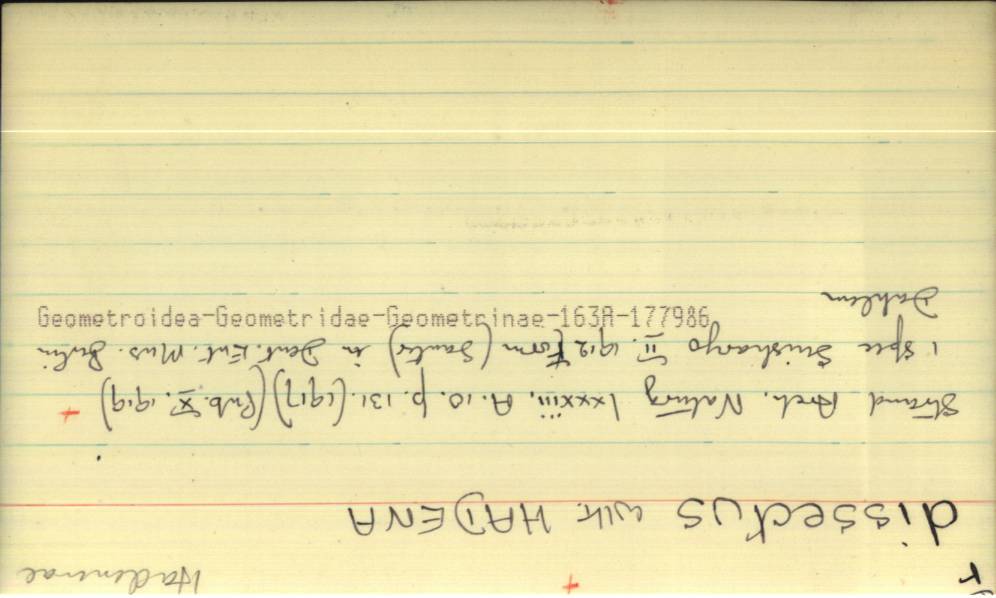 Hadeninae
dissectus wlk. HADENA
Strand Arch. Naturg lxxxiii, A.10. p. 131. (1917) (Pub. X. 1919)
1 spec Suisharyo II. 1912 Form (Sauter) in Deut. Ent. Mus. Berlin
Dahlem
Geometroidea-Geometridae-Geometrinae-163A-177986